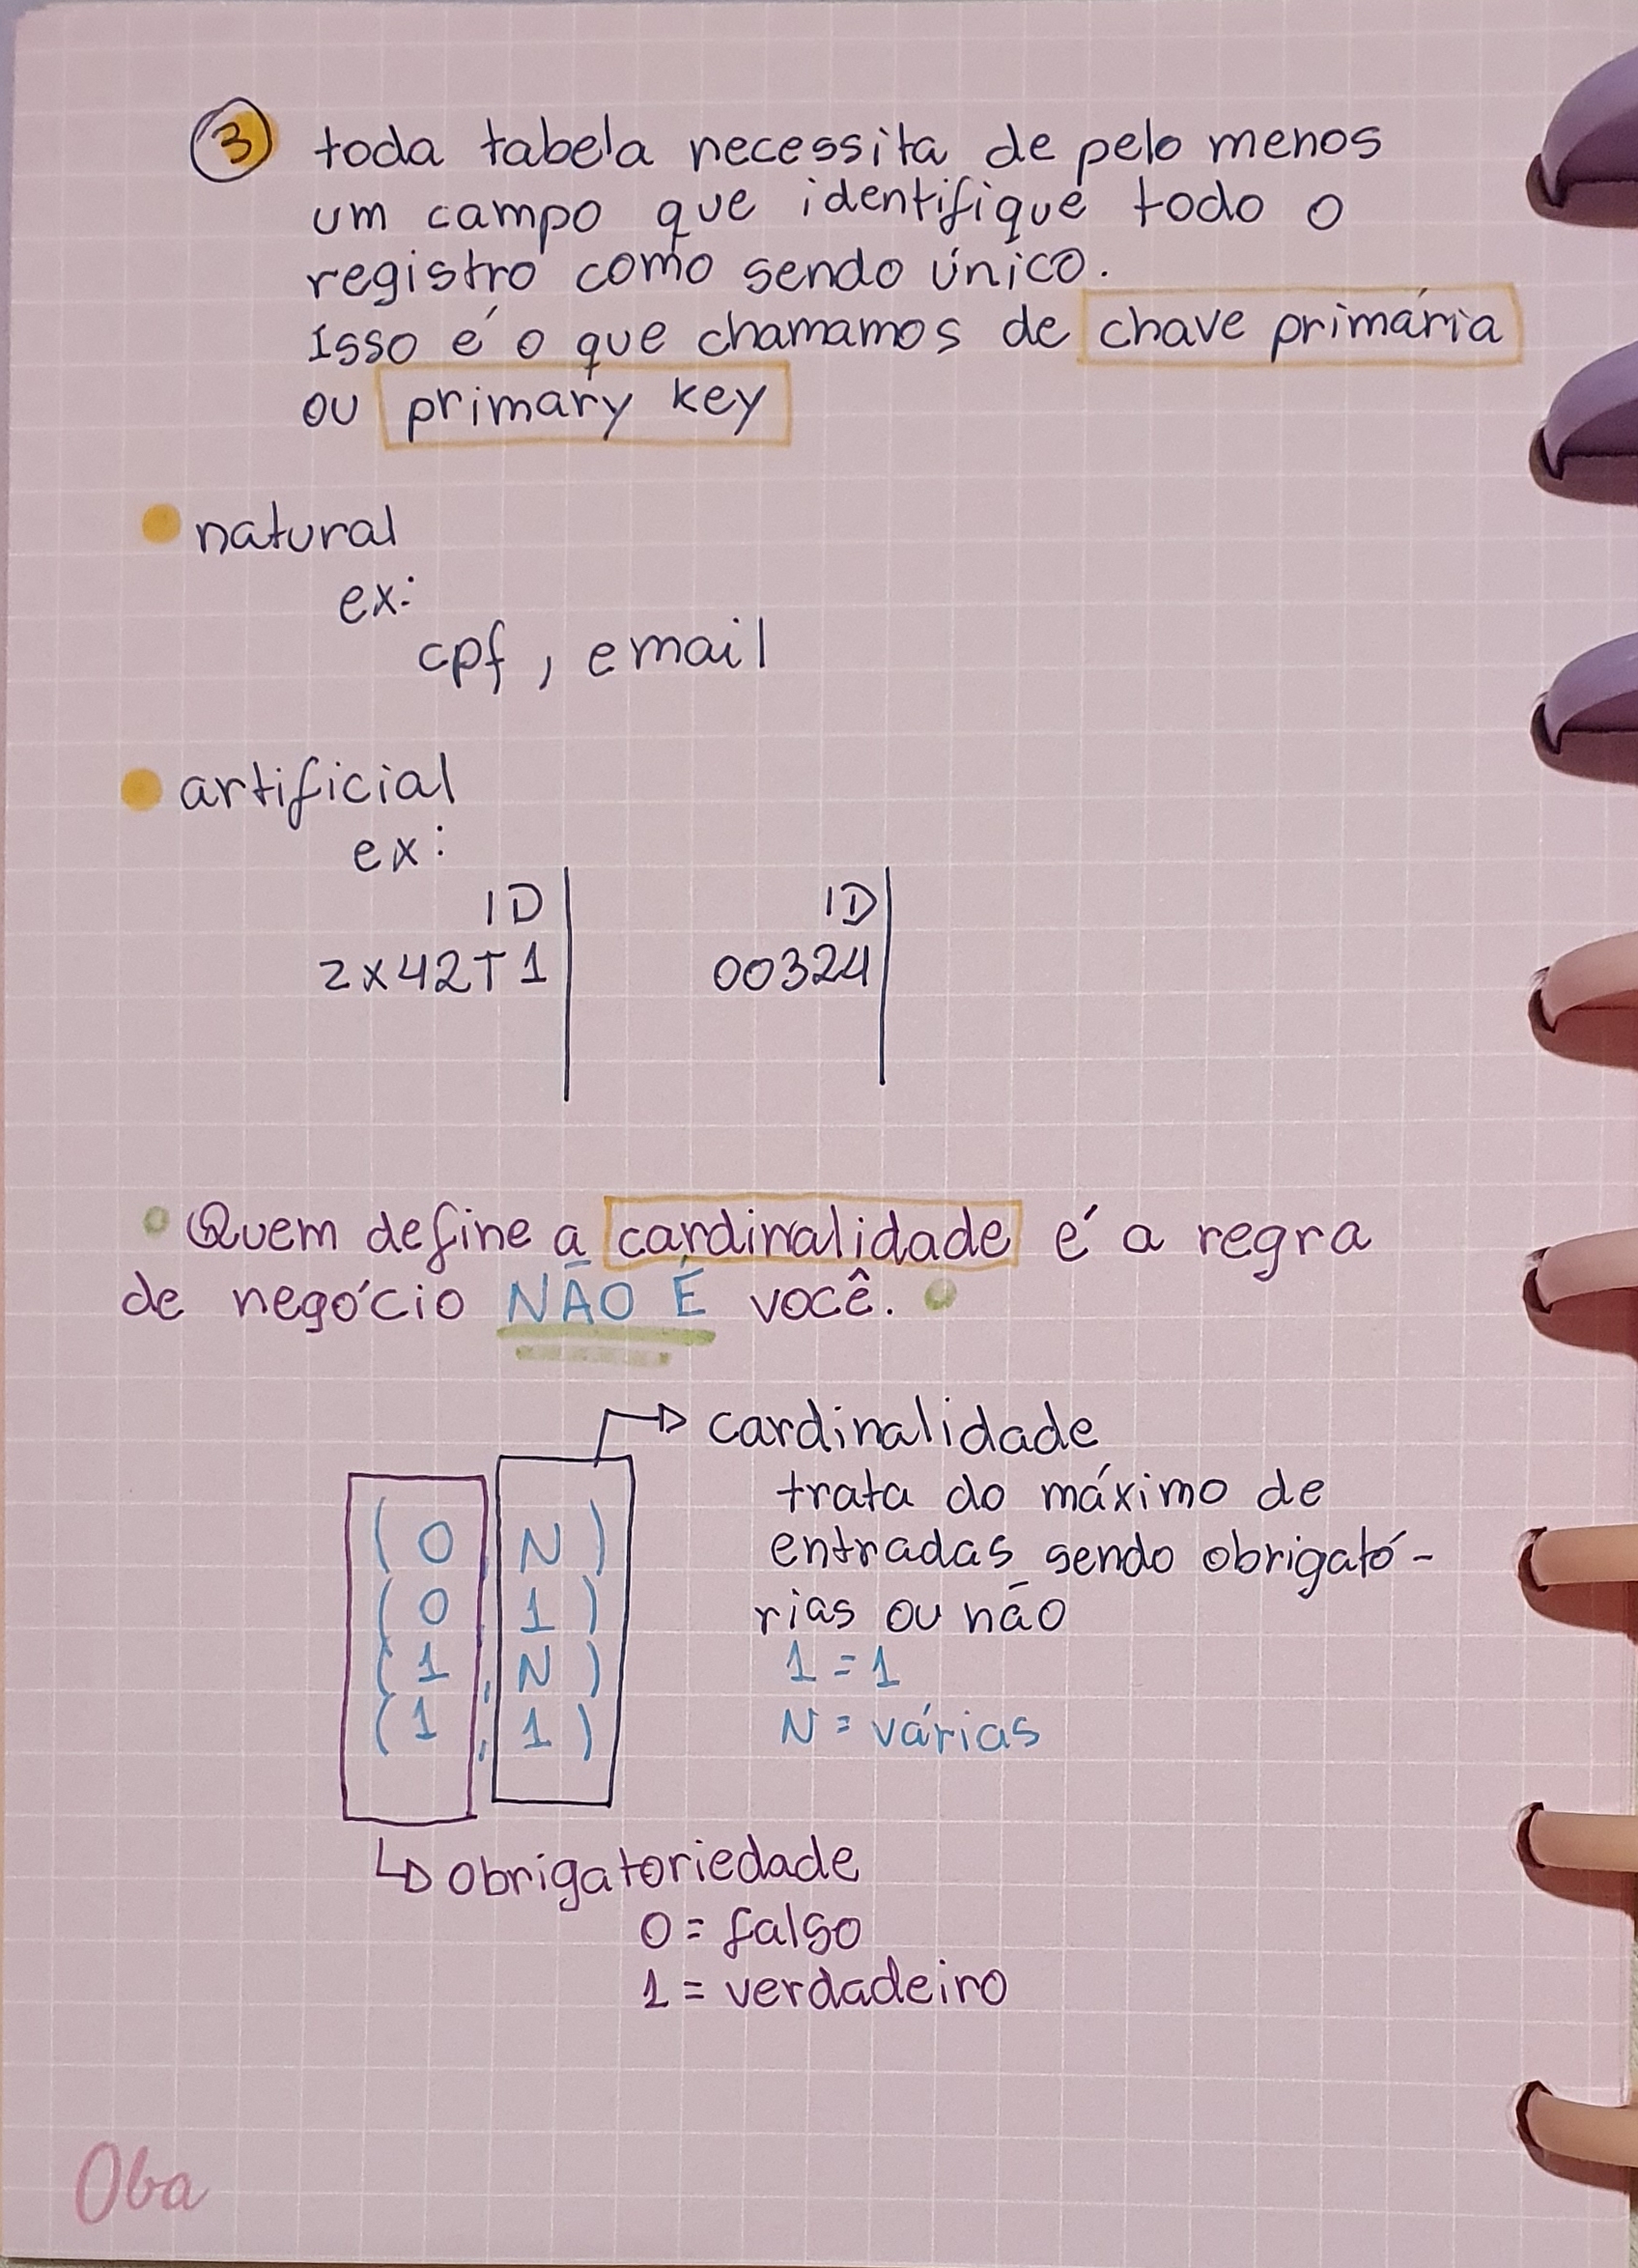 3 toda tabela necessita de pelo menos
um campo que identifique todo o
registro como sendo único.
Isso é o que chamamos de chave primária
ou primary key
natural
ex:
cpf, email
artificial
ex:
ID ID
zx42T1 00324
Quem define a cardinalidade é a regra
de negócio NÃO É você.
cardinalidade
trata do máximo de
entradas sendo obrigató-
rias ou não
1 = 1
N = várias
(0, N)
(0, 1)
(1, N)
(1, 1)
obrigatoriedade
0 = falso
1 = verdadeiro
Oba